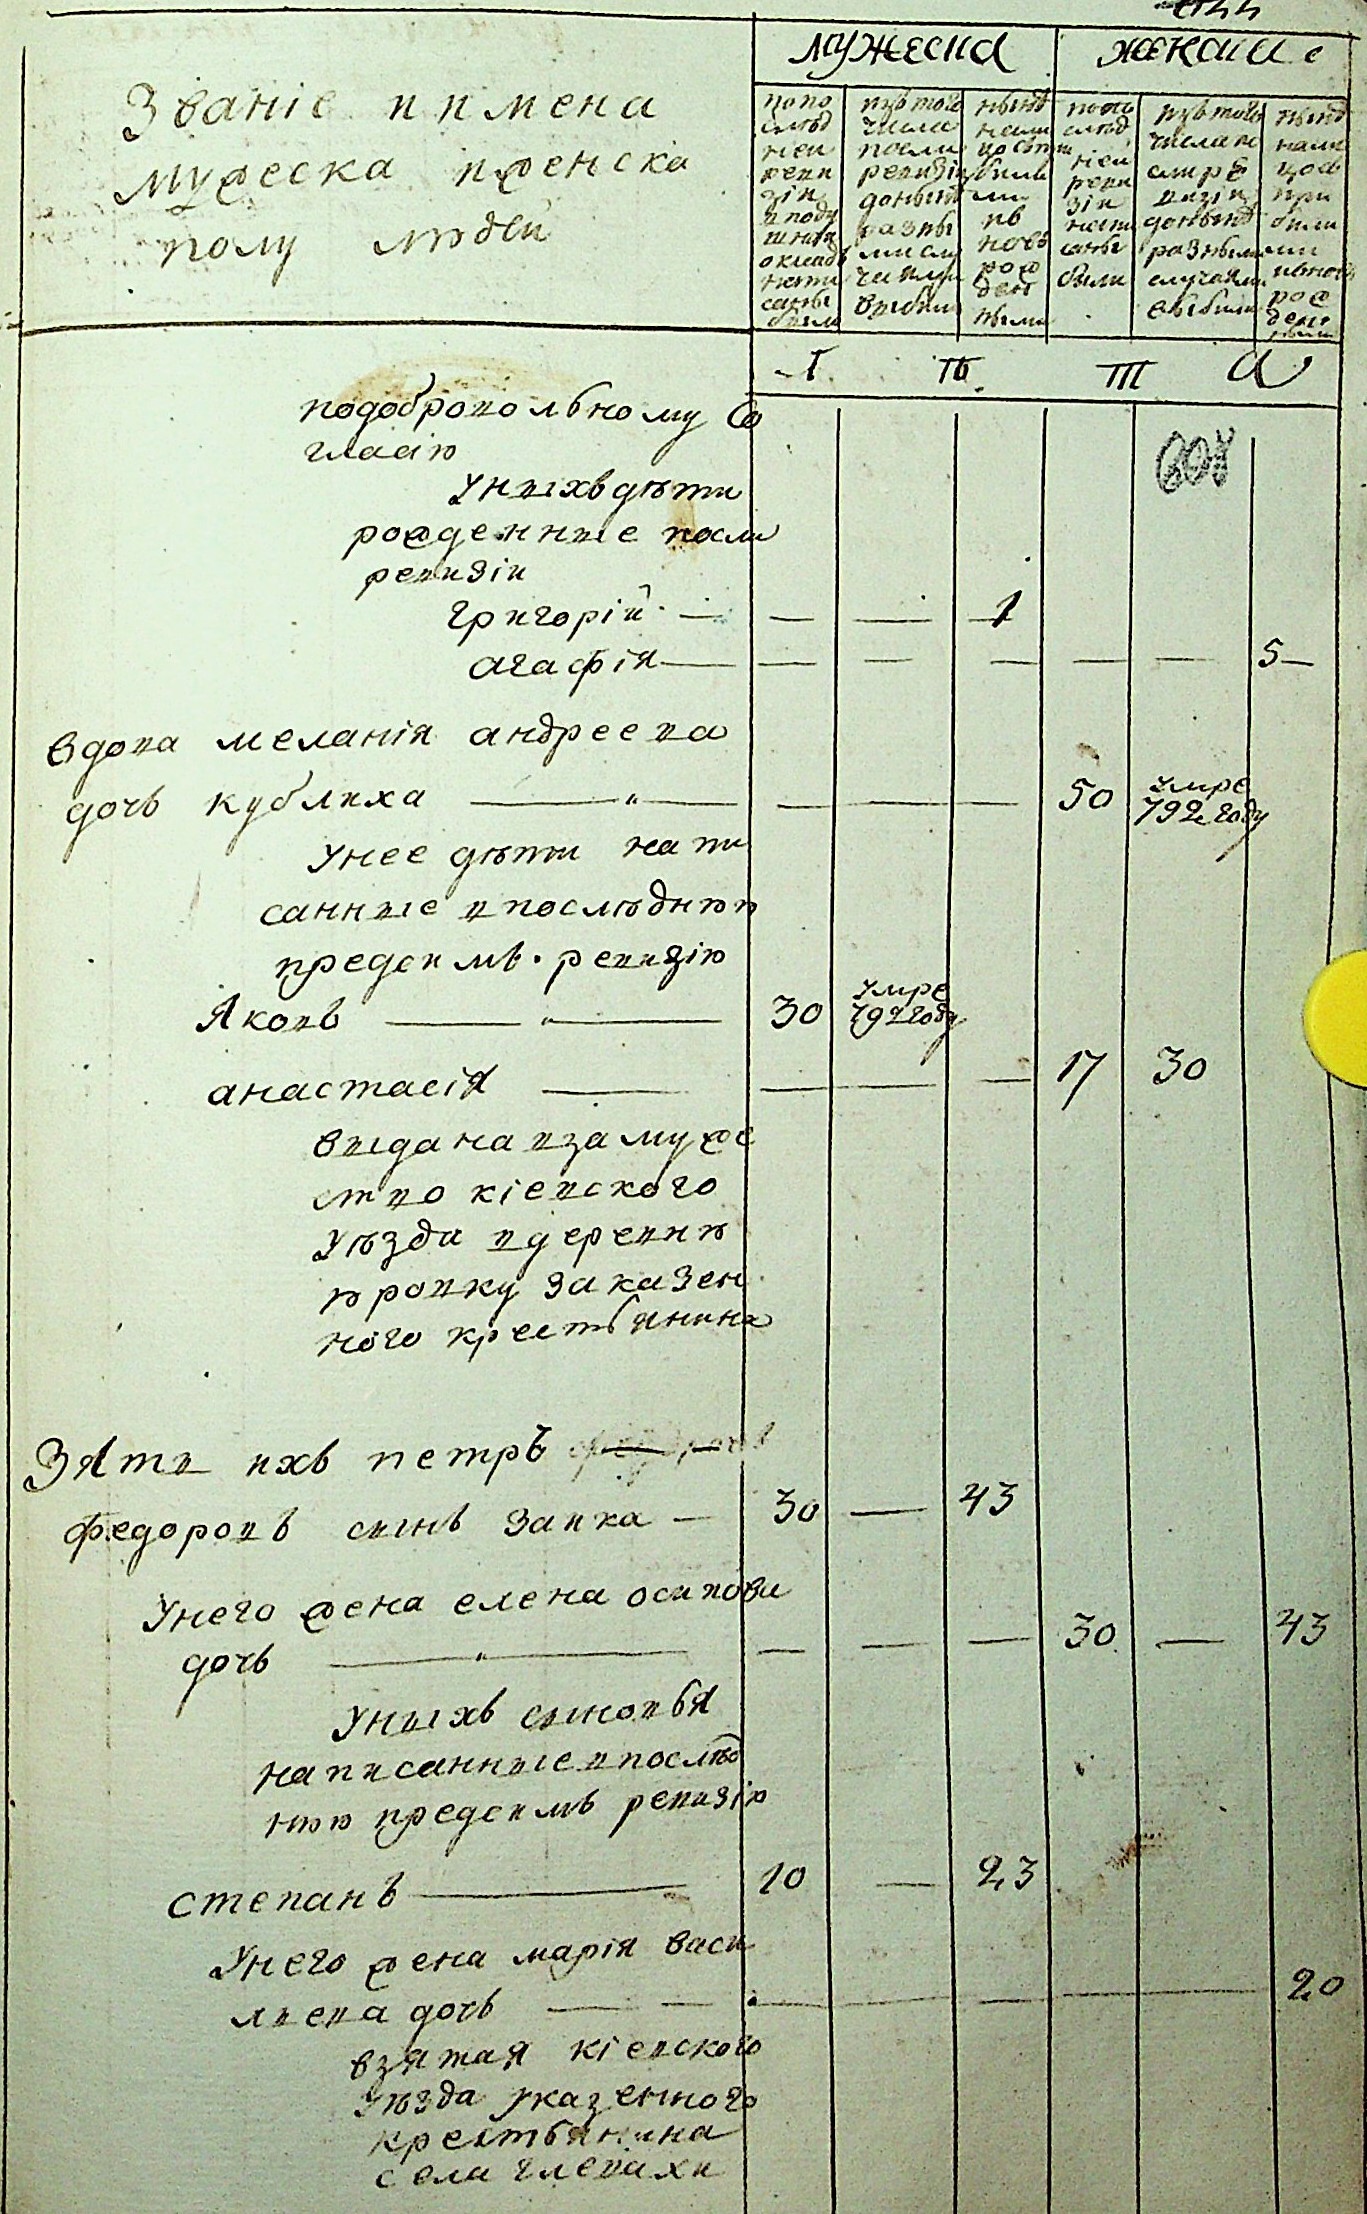 мужеска
женска
Званіе и имена
мужеска и женска
полу людей
попо
слѣд
ней
реви
зіи
вподу
шной
окладѣ
напи
саны
были
изътого
числа
посли
ревизіи
донынѣ
разны
ми слу
чаями
выбыли
нынѣ
нали
цо съ при
былы
ми
нь
ново
рож
ден
ными
посл
лѣд
ней
реви
зіи
напи
саны
были
изътого
числа по
слѣ ре
визіи
донынѣ
разными
случаями
выбыли
нынѣ
нали
цо съ
при
были
ми
рож
ден
ными
I II III
подобровольному со
гласію
Унихъ дѣти
рожденные посли
ревизіи
Григорій — — — 1
Агафія — — — — — — 5
вдова меланія андреева
дочь кублиха — — — — 50 Умре 792 году
Унее дѣти напи
санные в послѣднюю
предсимъ ревизію
Яковъ — 30 Умре 792 году
анастасія — — — — 17 30
выдана взамуже
ство кіевского
Уѣзда в деревню
юровку заказен
ного крестьянина
Зяти ихъ петръ
федоровъ сынъ заика — 30 — 43
Унего жена елена осипова
дочь — — — — 30 — 43
Унихъ сыновья
написанные в послѣд
нюю предсимъ ревизію
степанъ — 10 — 23
Унего жена марія васи
лиева дочь — — — — — 20
взятая кіевского
Уѣзда Указенного
крестьянина
села глевахи